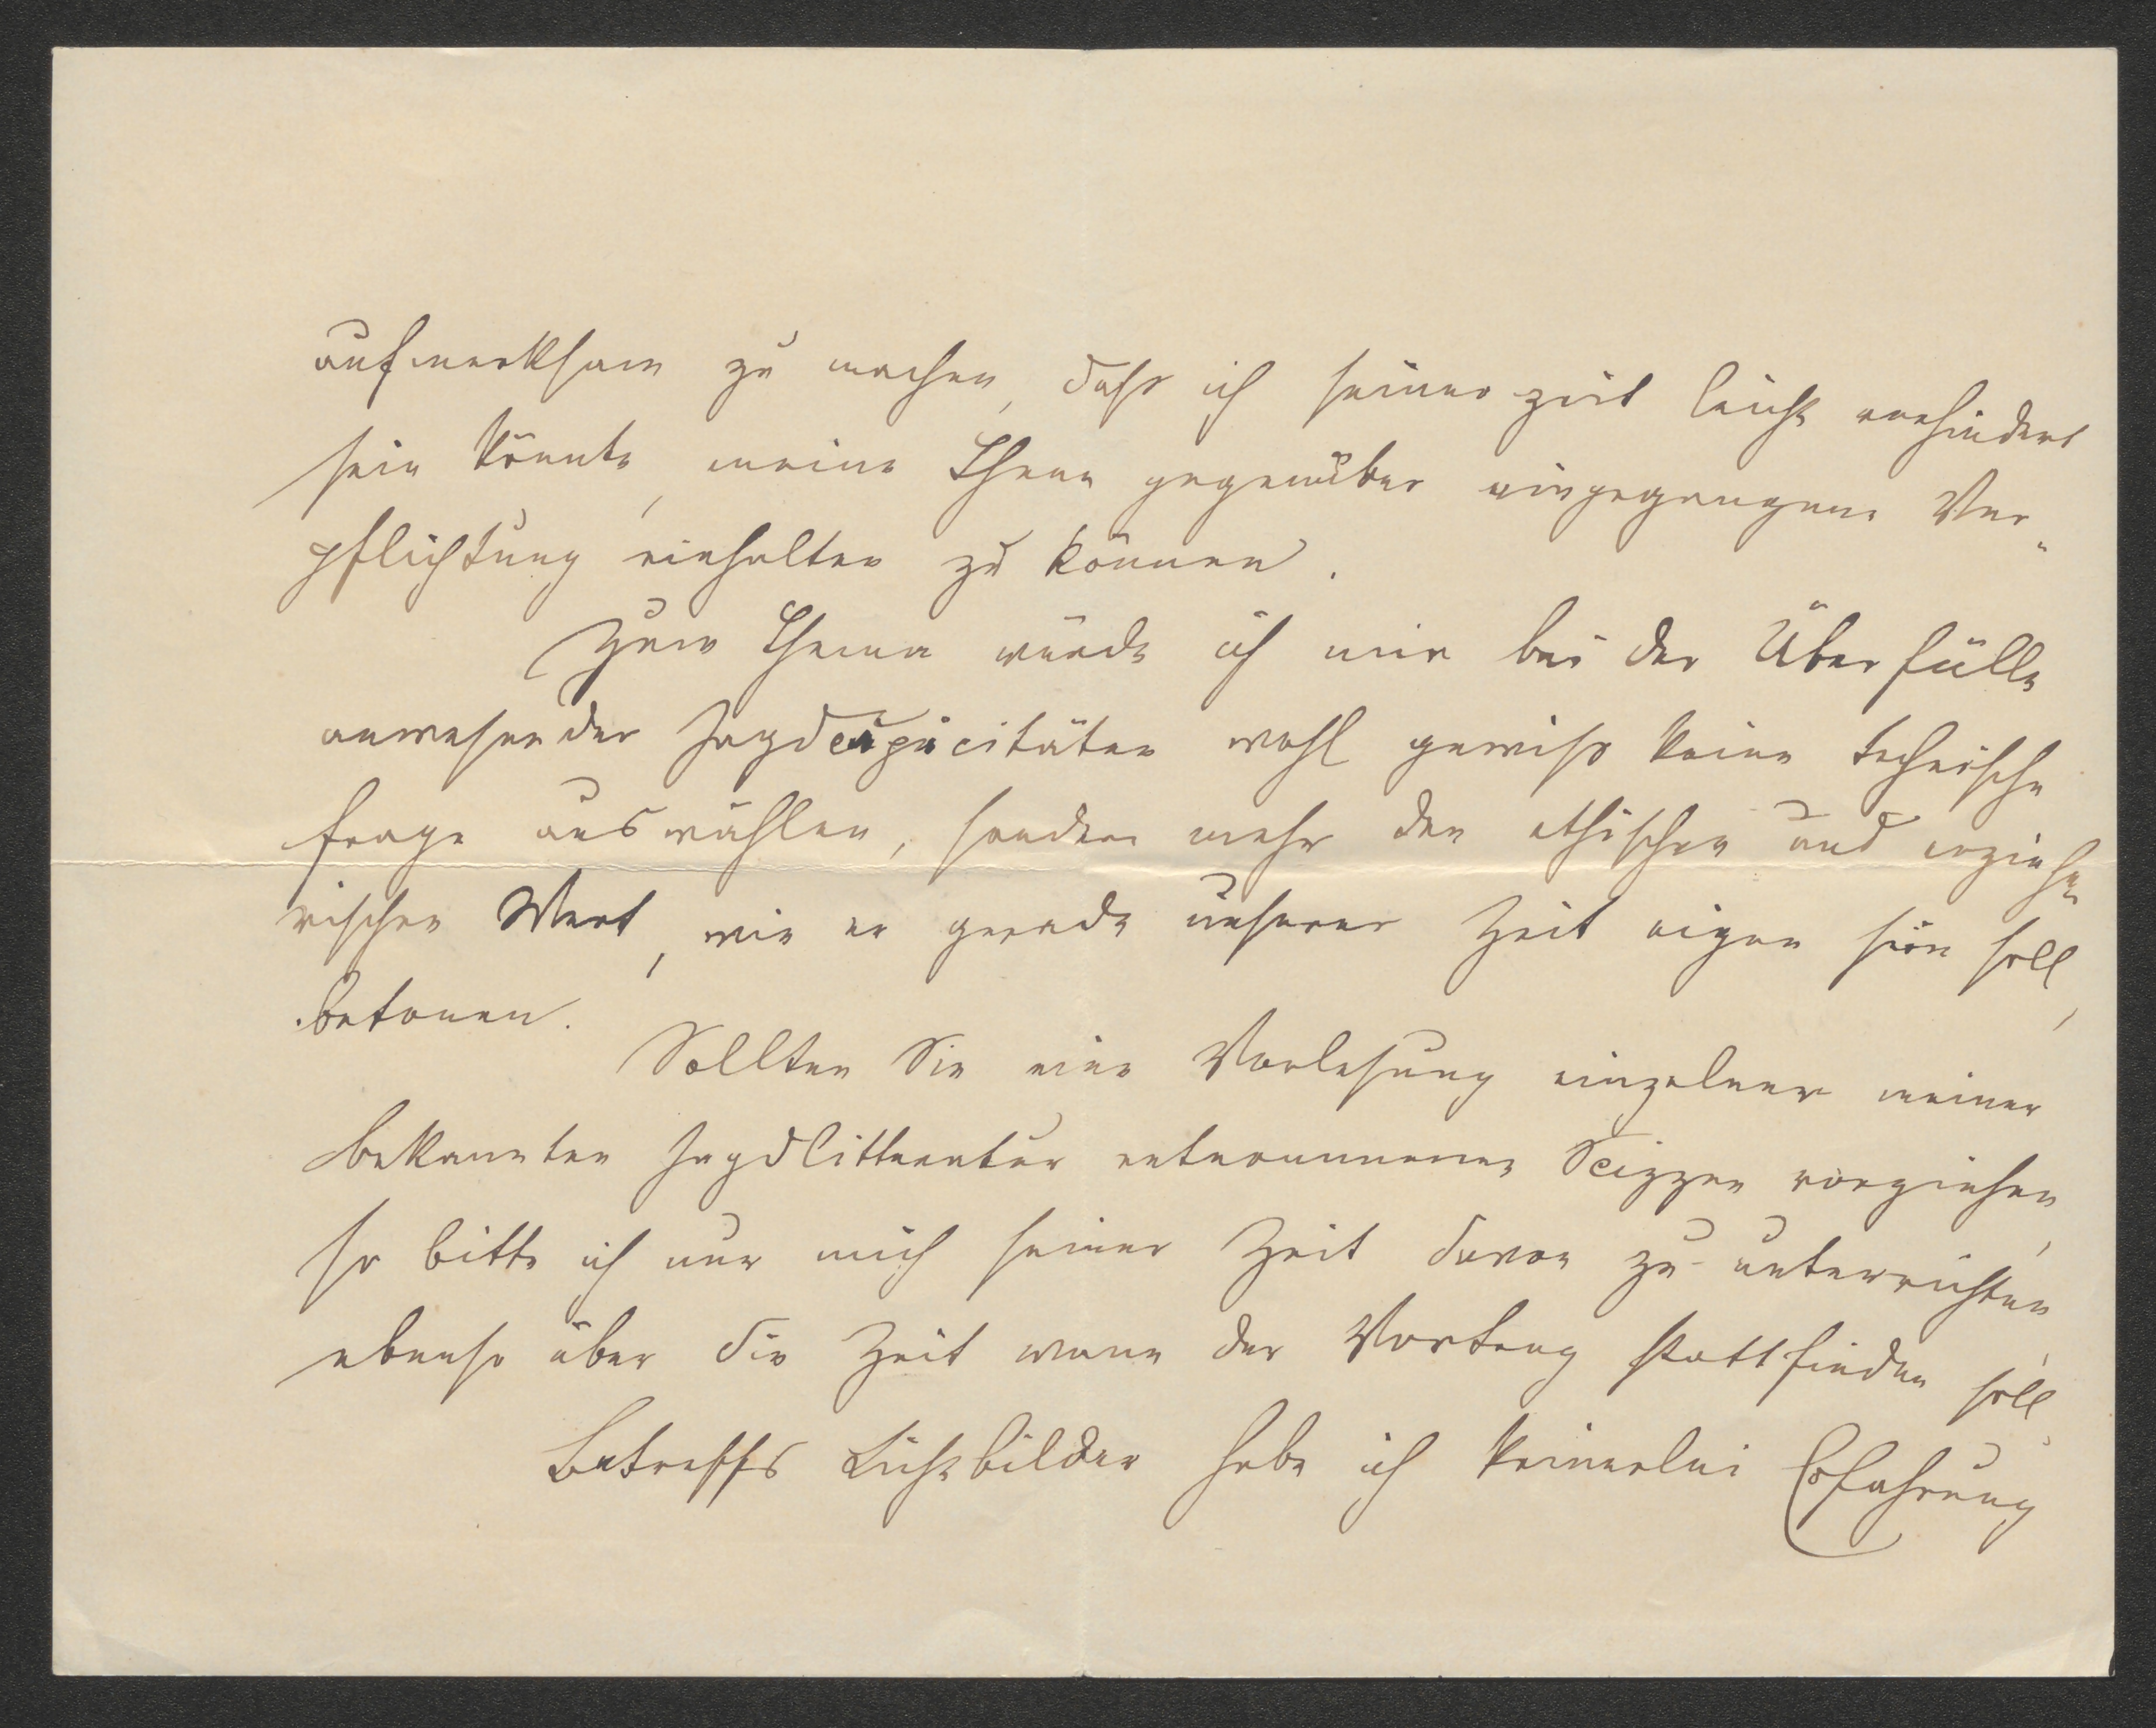 aufmerksam zu machen, daß ich seiner zeit leicht verhindert
sein könnte, meine Ihnen gegenüber eingegangene Ver-
pflichtung einhalten zu können.
Zum Thema würde ich mir bei der Überfülle
anwesender Jagdcapacitäten wohl gewiß keine technische
Frage auswählen, sondern mehr den ethischen und erziehe-
rischen Wert, wie er gerade unserer Zeit eigen sein soll,
betonen.
Sollten Sie eine Vorlesung einzelner meiner
bekannten Jagdlitteratur entnommener Scizzen vorziehen,
so bitte ich nur mich seiner Zeit davon zu unterrichten,
ebenso über die Zeit wann der Vortrag stattfinden soll.
Betreffs Lichtbilder habe ich keinerlei Erfahrung